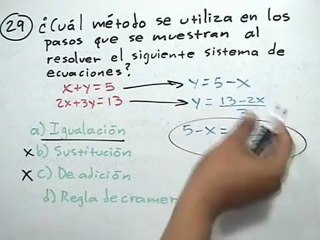 29 ¿Cuál método se utiliza en los
pasos que se muestran al
resolver el siguiente sistema de
ecuaciones?
x+y=5 → y=5-x
2x+3y=13 → y=13-2x
a) Igualación 5-x=
x b) Sustitución
x c) De adición
d) Regla de cramer